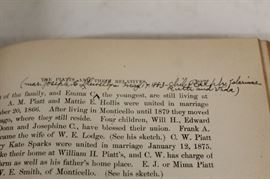 THE PIATTS AND THEIR RELATIVES.
of the family, and Emma C., the youngest, are still living at
A. M. Piatt and Mattie E. Hollis were united in marriage
ber 20, 1866. After living in Monticello until 1879 they moved
age, where they still reside. Four children, Will H., Edward
Donn and Josephine C., have blessed their union. Frank A.
came the wife of W. E. Lodge. (See his sketch.) C. W. Piatt
ry Kate Sparks were united in marriage January 12, 1875.
ke their home at William H. Piatt's, and C. W. has charge of
arm as well as his father's home place. E. J. or Mima Piatt
W. E. Smith, of Monticello. (See his sketch.)